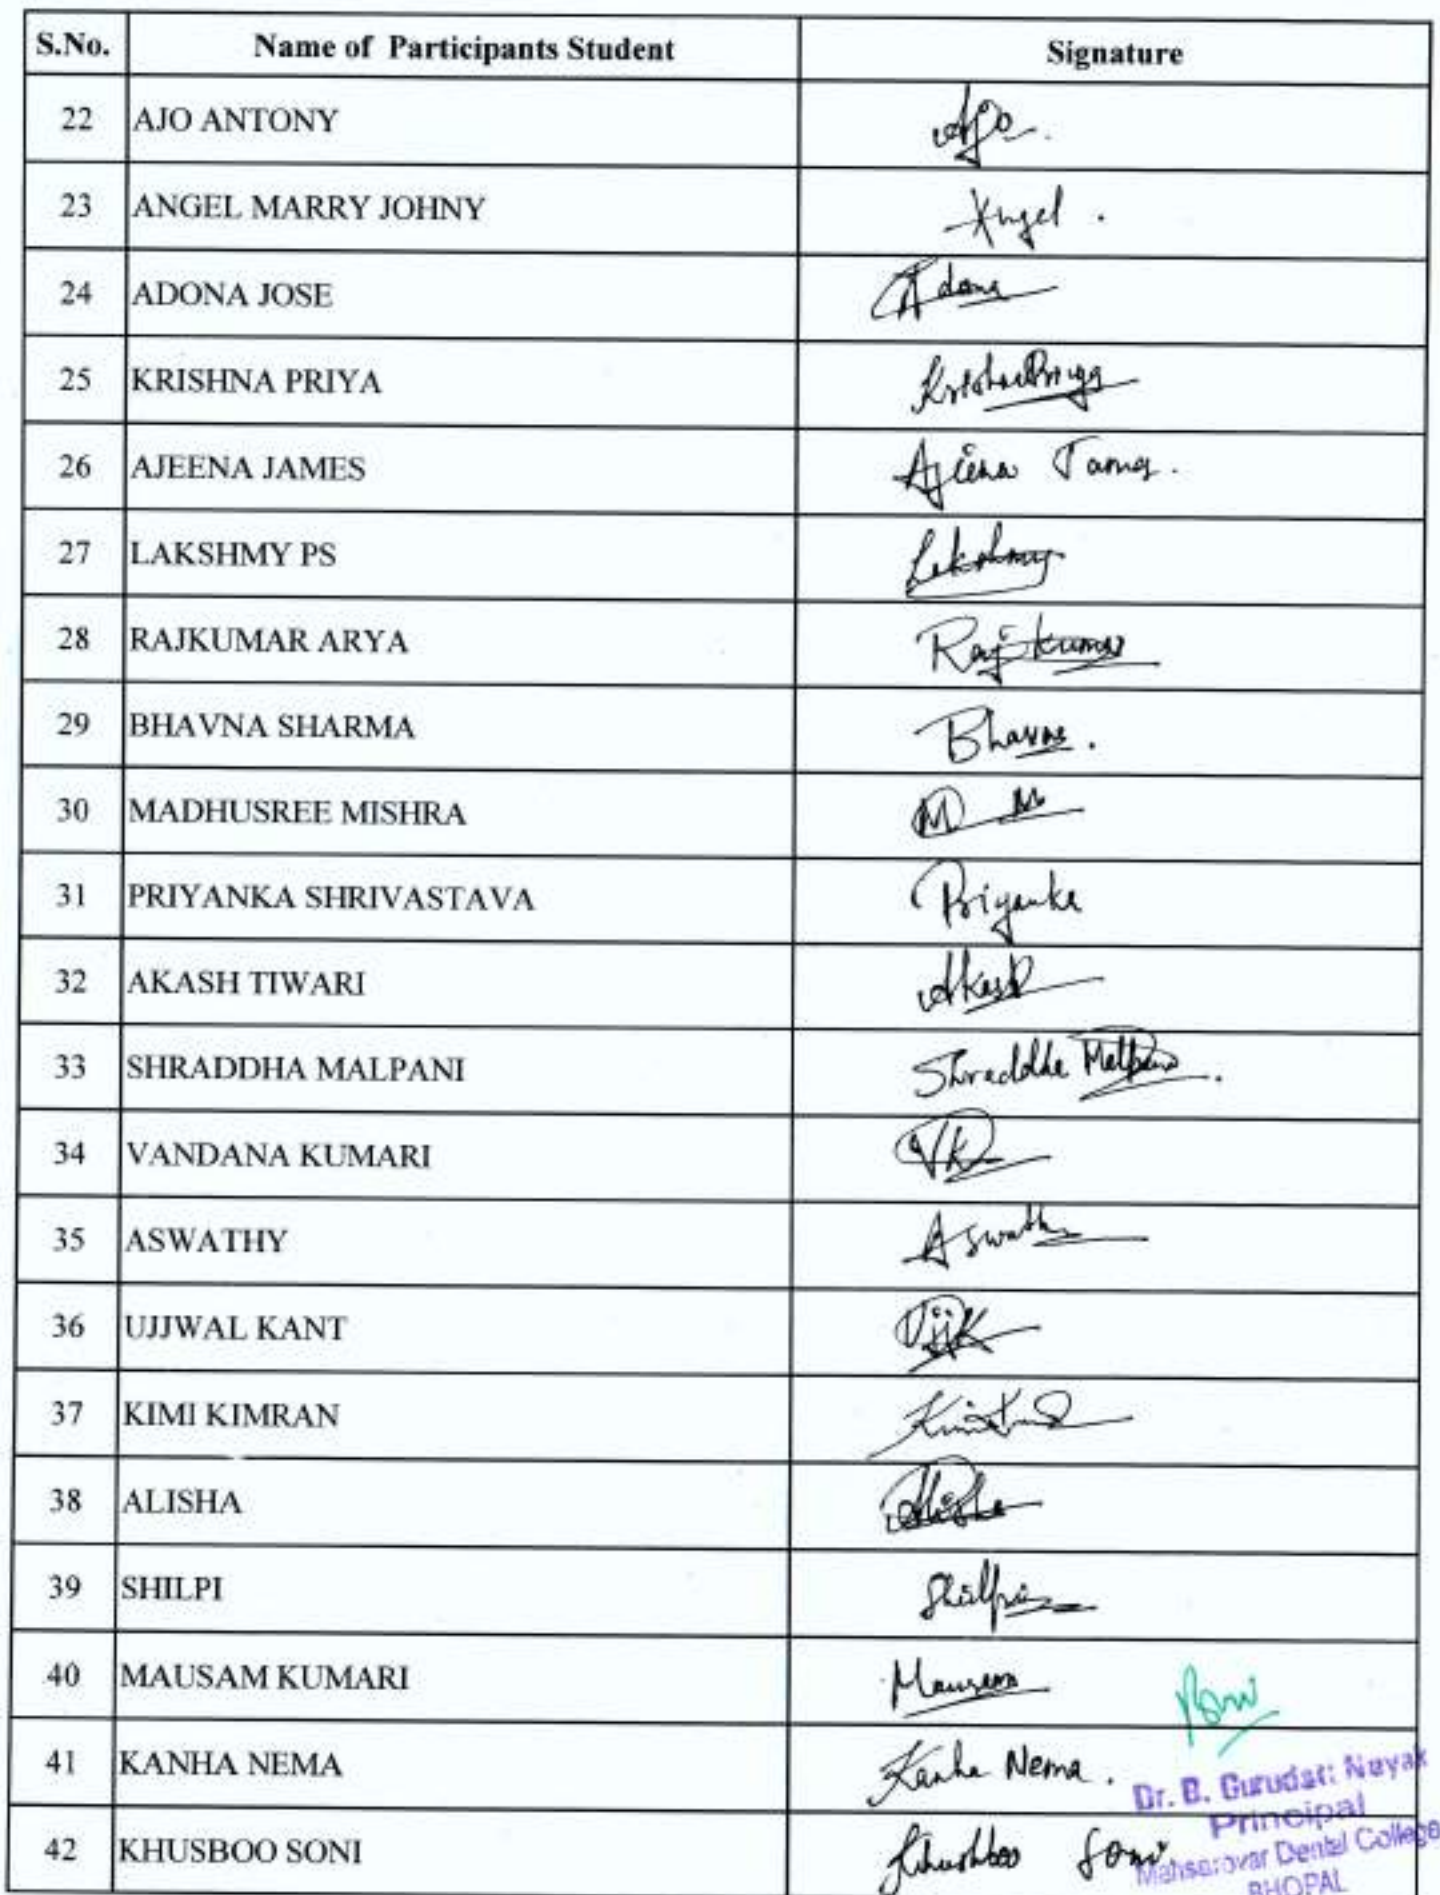 S.No. Name of Participants Student Signature
22 AJO ANTONY Ajo.
23 ANGEL MARRY JOHNY Angel.
24 ADONA JOSE Adona
25 KRISHNA PRIYA KrishnaPriya
26 AJEENA JAMES Ajeena James.
27 LAKSHMY PS Lakshmy
28 RAJKUMAR ARYA Rajkumar
29 BHAVNA SHARMA Bhavna.
30 MADHUSREE MISHRA M M
31 PRIYANKA SHRIVASTAVA Priyanka
32 AKASH TIWARI Akash
33 SHRADDHA MALPANI Shraddha Malpani.
34 VANDANA KUMARI VK
35 ASWATHY Aswathy
36 UJJWAL KANT UjjK
37 KIMI KIMRAN
38 ALISHA Alisha
39 SHILPI Shilpi
40 MAUSAM KUMARI Mausam
41 KANHA NEMA Kanha Nema.
Dr. B. Gurudatt Nayak
Principal
42 KHUSBOO SONI Khushboo Soni
Mansarovar Dental College
BHOPAL